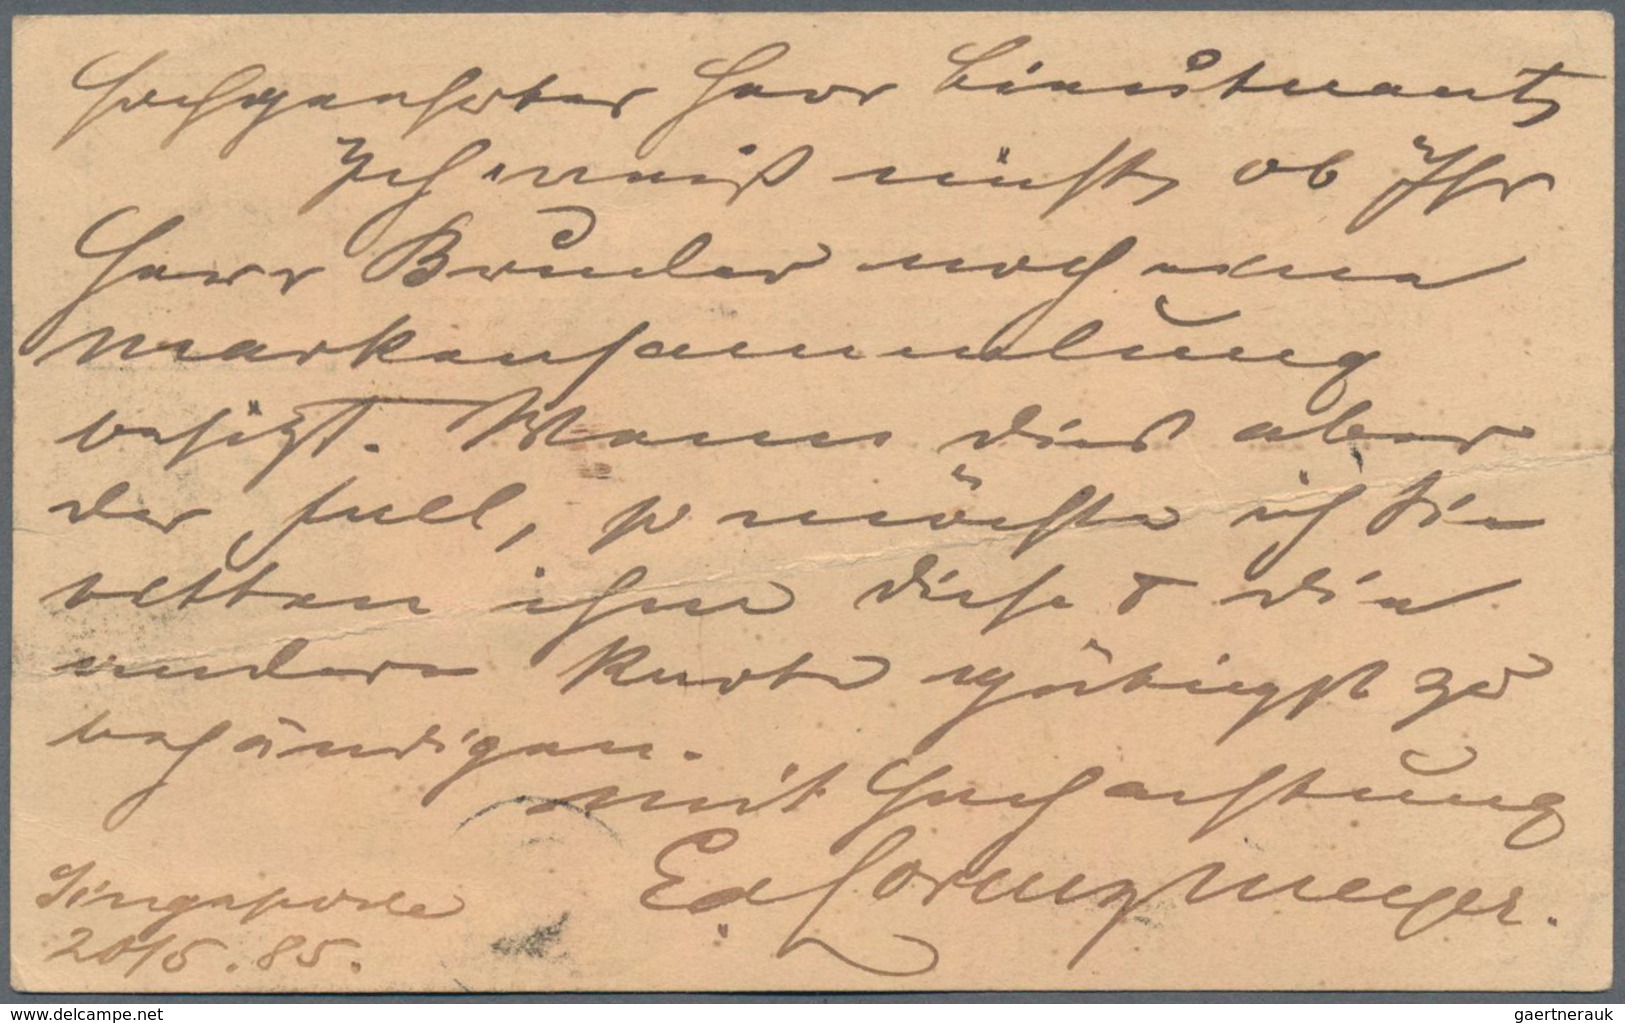 Hochgeehrter Herr Lieutenant,
Ich weiß nicht, ob Ihr
Herr Bruder noch eine
Markensammlung
besitzt. Wenn dies aber
der Fall, so möchte ich Sie
bitten ihm diese & die
andere Karte gütigst zu
behändigen.
Mit Hochachtung
Ed Lorenz Meyer.
Singapore
20/5.85.
delcampe.net
gaertnerauk